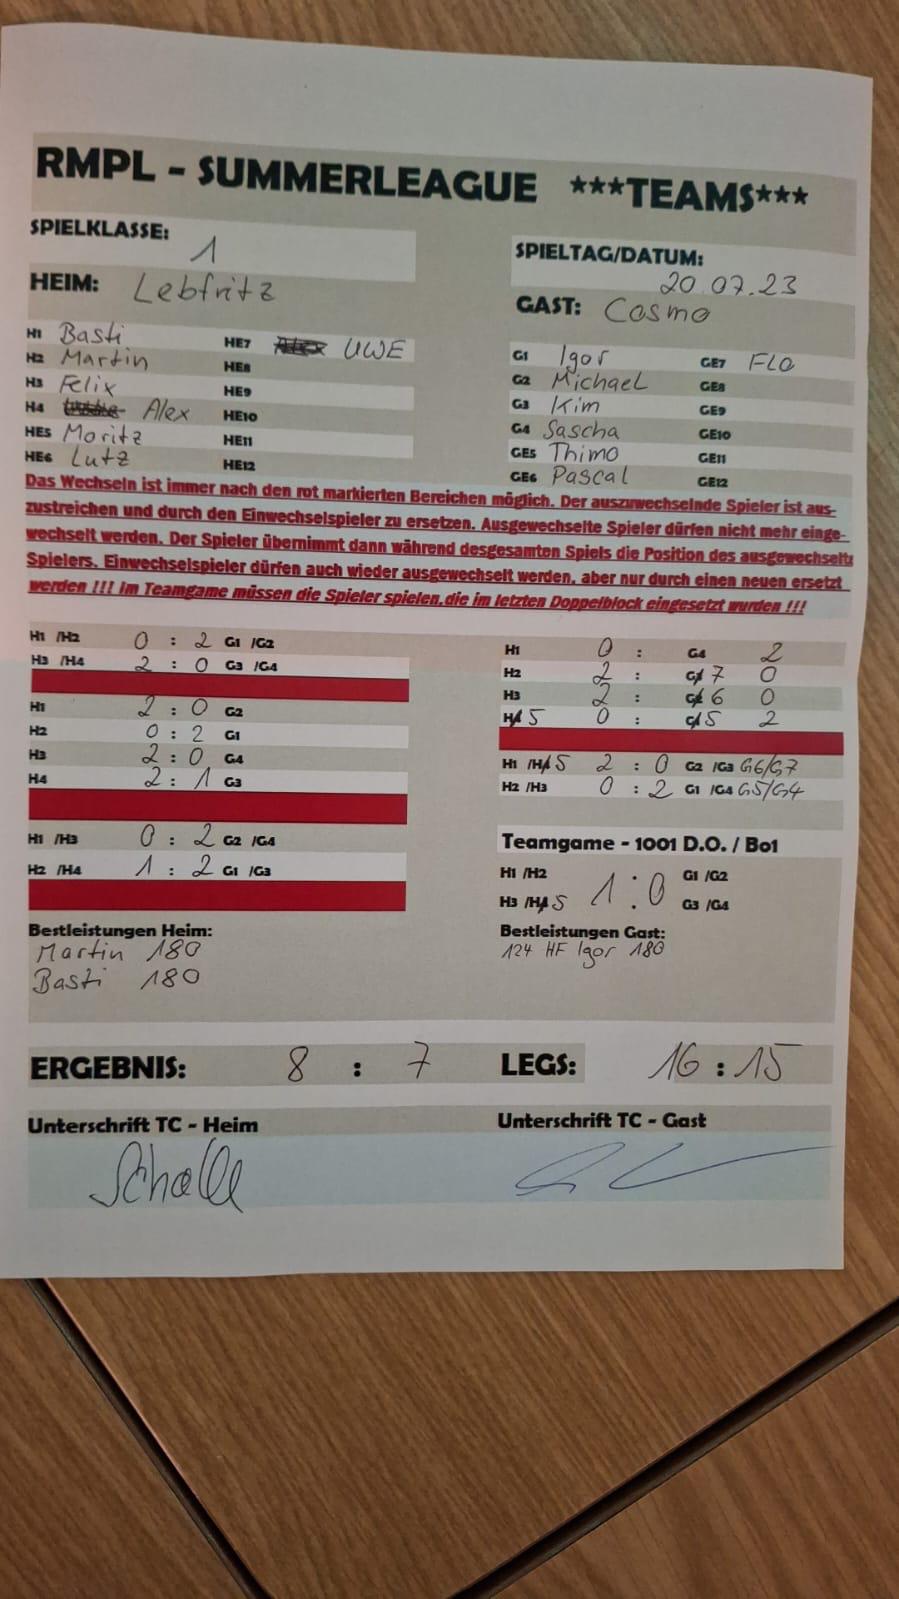 RMPL - SUMMERLEAGUE ***TEAMS***
SPIELKLASSE: 1
SPIELTAG/DATUM: 20.07.23
HEIM: Lebfritz
GAST: Cosmo
H1 Basti HE7 UWE
H2 Martin HE8
H3 Felix HE9
H4 Alex HE10
HE5 Moritz HE11
HE6 Lutz HE12
G1 Igor GE7 FLO
G2 Michael GE8
G3 Kim GE9
G4 Sascha GE10
GE5 Thimo GE11
GE6 Pascal GE12
Das Wechseln ist immer nach den rot markierten Bereichen möglich. Der auszuwechselnde Spieler ist aus-
zustreichen und durch den Einwechselspieler zu ersetzen. Ausgewechselte Spieler dürfen nicht mehr einge-
wechselt werden. Der Spieler übernimmt dann während desgesamten Spiels die Position des ausgewechselte
Spielers. Einwechselspieler dürfen auch wieder ausgewechselt werden, aber nur durch einen neuen ersetzt
werden !!! Im Teamgame müssen die Spieler spielen,die im letzten Doppelblock eingesetzt wurden !!!
H1 /H2 0 : 2 G1 /G2
H3 /H4 2 : 0 G3 /G4
H1 2 : 0 G2
H2 0 : 2 G1
H3 2 : 0 G4
H4 2 : 1 G3
H1 /H3 0 : 2 G2 /G4
H2 /H4 1 : 2 G1 /G3
H1 0 : G4 2
H2 2 : G7 0
H3 2 : G6 0
H5 0 : G5 2
H1 /H5 2 : 0 G2 /G3 G6/G7
H2 /H3 0 : 2 G1 /G4 G5/G4
Teamgame - 1001 D.O. / Bo1
H1 /H2 G1 /G2
1 : 0
H3 /H5 G3 /G4
Bestleistungen Heim:
Martin 180
Basti 180
Bestleistungen Gast:
124 HF Igor 180
ERGEBNIS: 8 : 7
LEGS: 16 : 15
Unterschrift TC - Heim
Unterschrift TC - Gast
Schalle